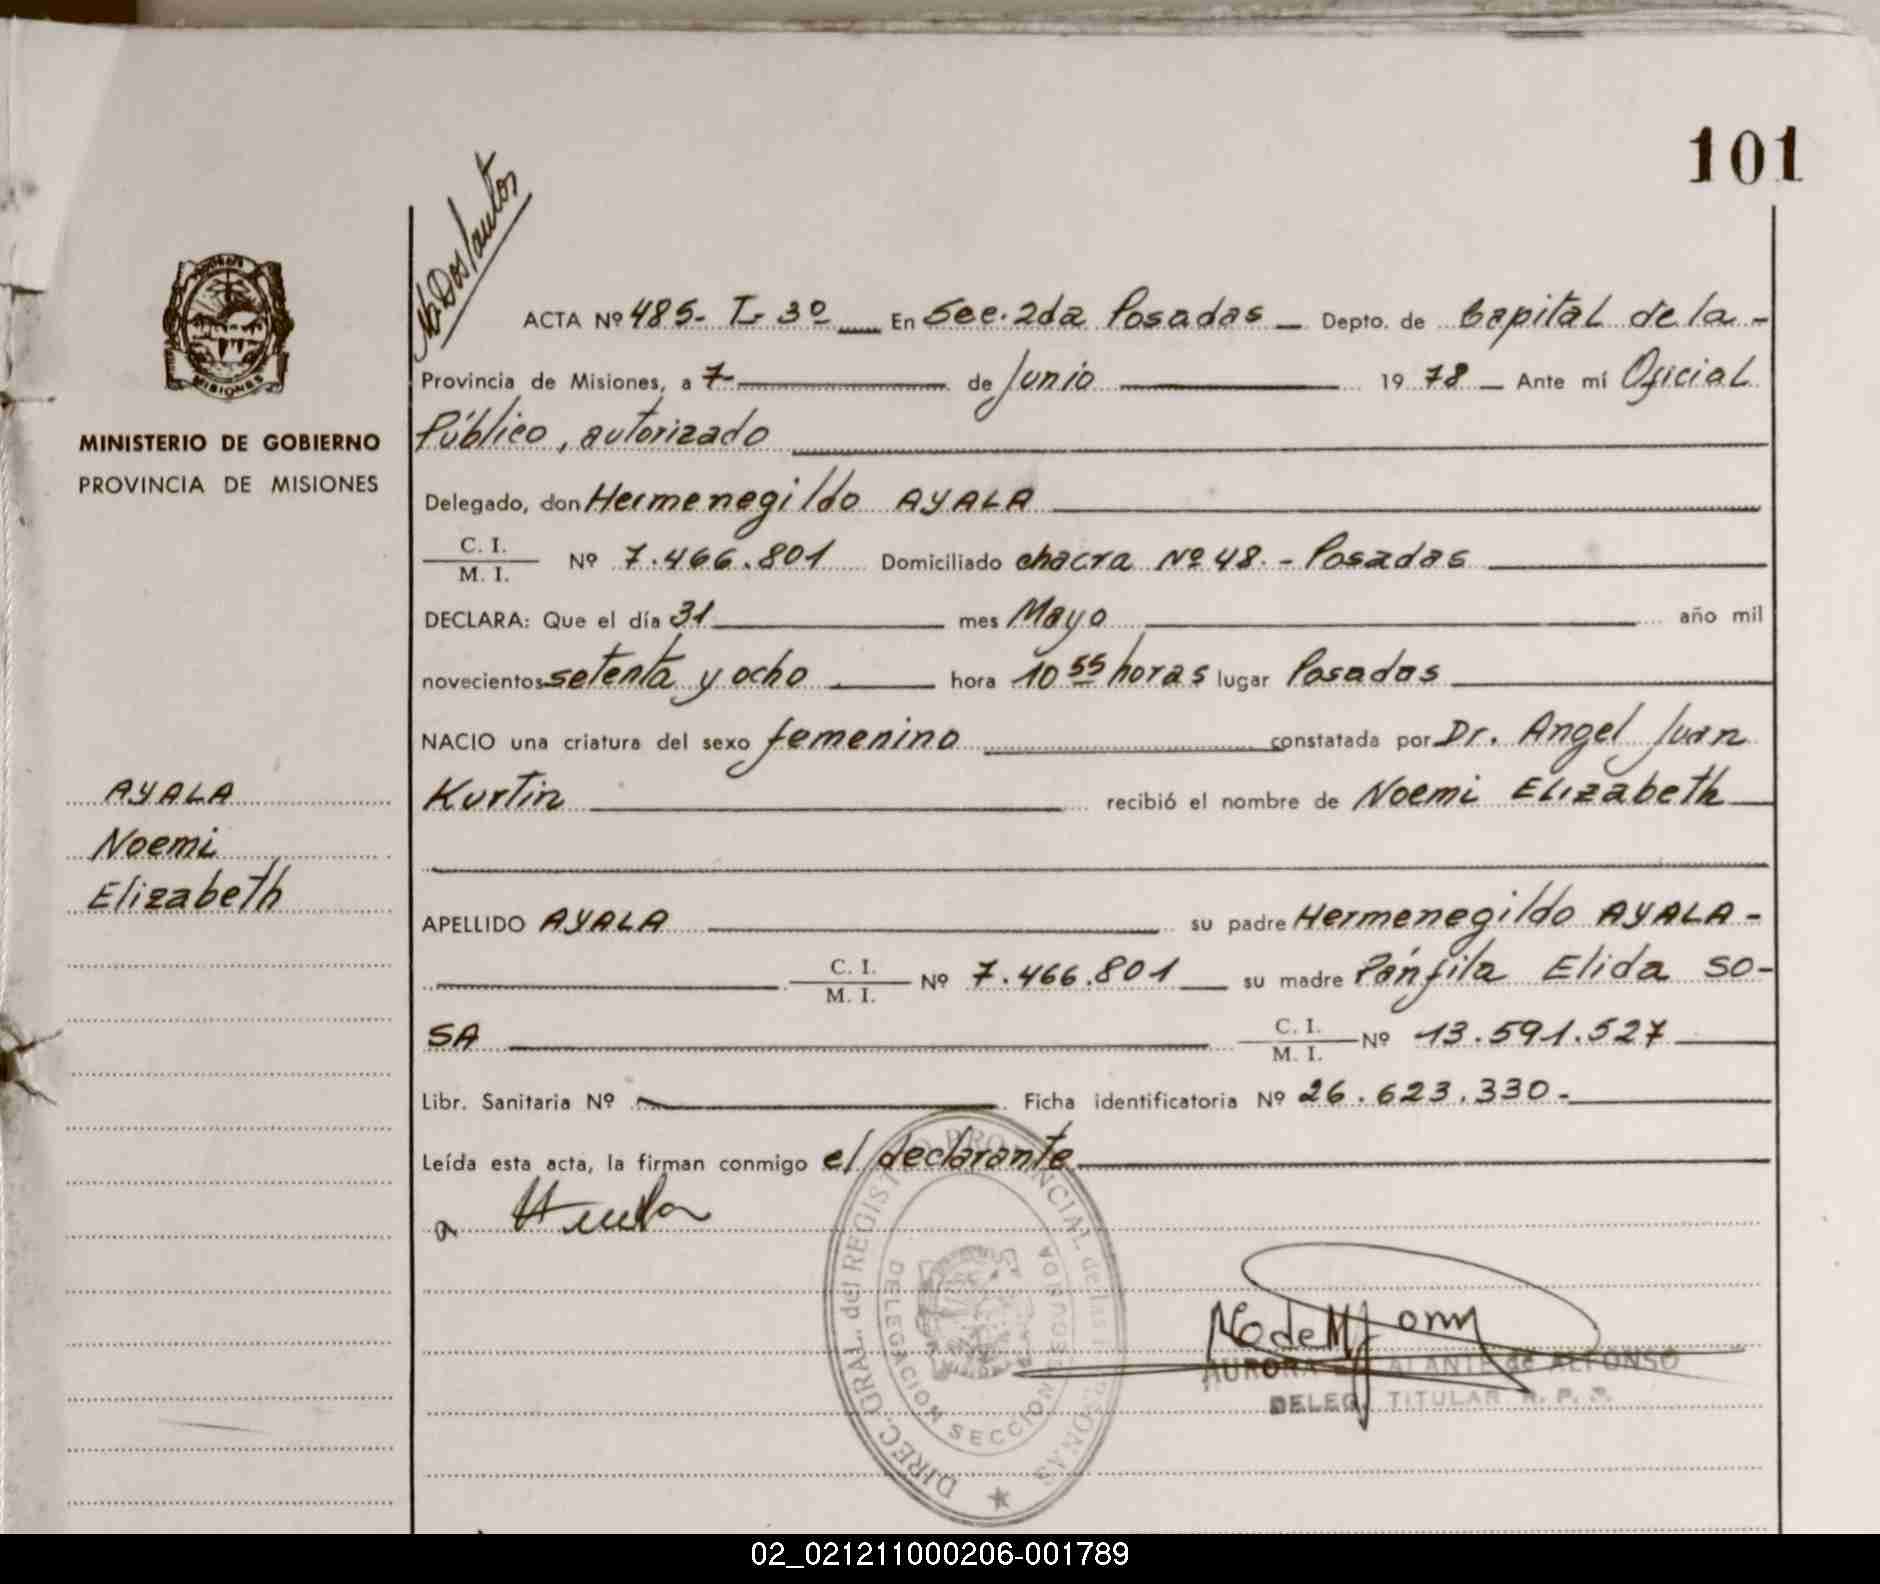 101
Dos Santos
ACTA Nº 485- T- 3º En Sec. 2da Posadas Depto. de Capital de la -
Provincia de Misiones, a 7- de Junio 1978 Ante mí Oficial
Público, autorizado
Delegado, don Hermenegildo AYALA
C. I.
M. I. Nº 7.466.801 Domiciliado chacra Nº 48.- Posadas
DECLARA: Que el día 31 mes Mayo año mil
novecientos setenta y ocho hora 10 55 horas lugar Posadas
NACIO una criatura del sexo femenino constatada por Dr. Angel Juan
Kurtin recibió el nombre de Noemi Elizabeth
APELLIDO AYALA su padre Hermenegildo AYALA-
C. I.
M. I. Nº 7.466.801 su madre Pánfila Elida SO-
SA C. I.
M. I. Nº 13.591.527
Libr. Sanitaria Nº Ficha identificatoria Nº 26.623.330-
Leída esta acta, la firman conmigo el declarante
MISIONES
MINISTERIO DE GOBIERNO
PROVINCIA DE MISIONES
AYALA
Noemi
Elizabeth
DIREC. GRAL. del REGISTRO PROVINCIAL de las PERSONAS
DELEGACION SECCION SEGUNDA
AURORA ALANTE de ALFONSO
DELEG. TITULAR R. P. P.
02_021211000206-001789